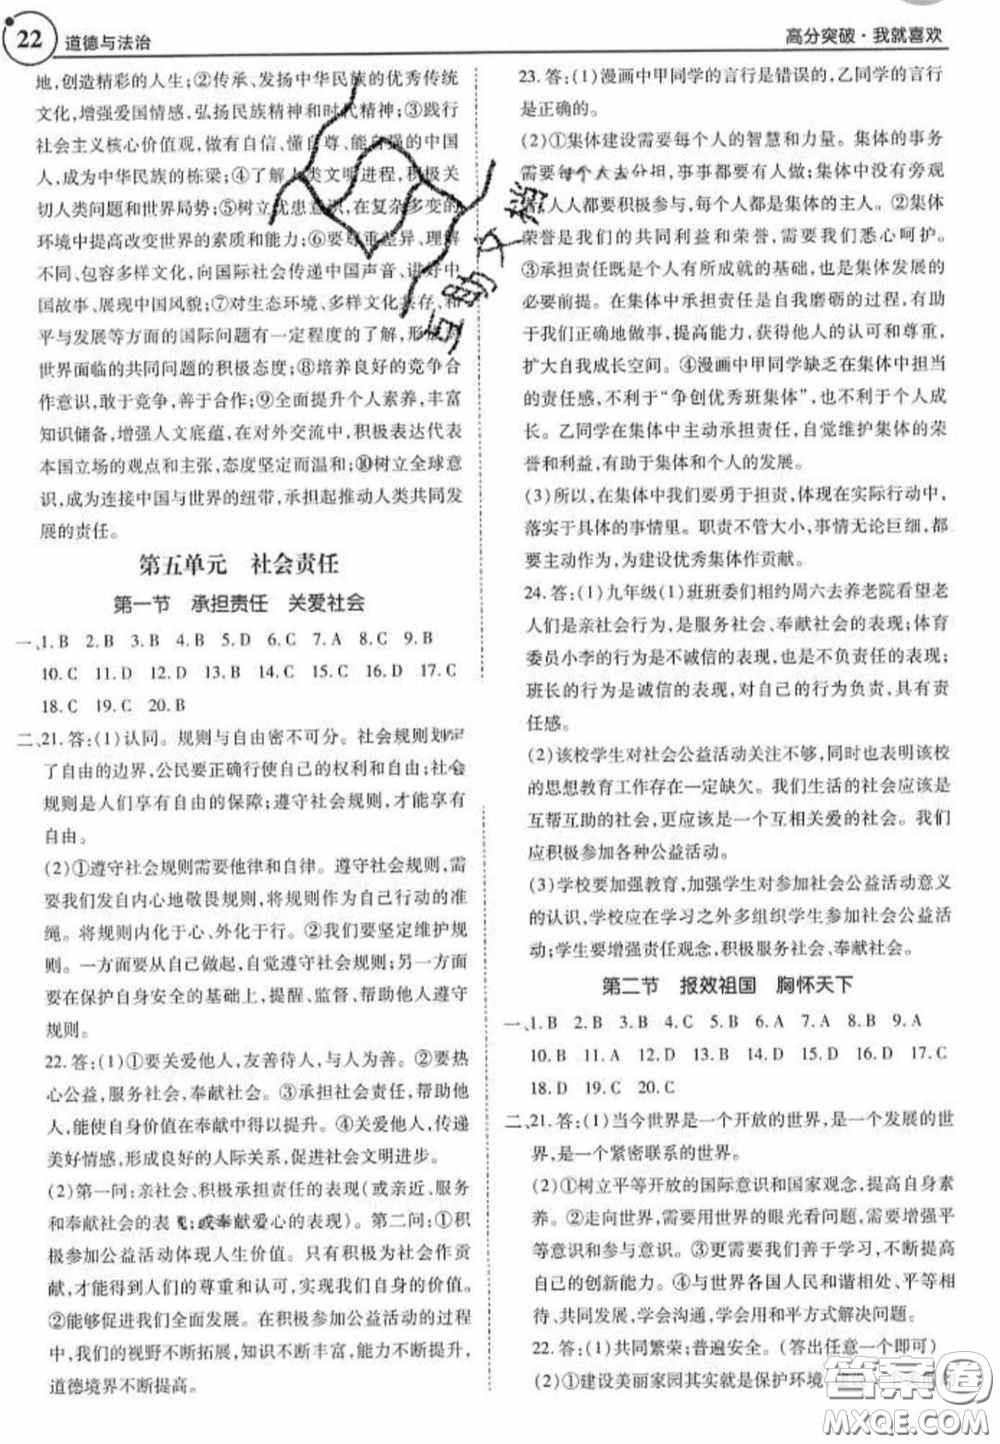 22 道德与法治
高分突破·我就喜欢
地,创造精彩的人生;②传承、发扬中华民族的优秀传统
文化,增强爱国情感,弘扬民族精神和时代精神;③践行
社会主义核心价值观,做有自信、懂自尊、能自强的中国
人,成为中华民族的栋梁;④了解人类文明进程,积极关
切人类问题和世界局势;⑤树立忧患意识,在复杂多变的
环境中提高改变世界的素质和能力;⑥要尊重差异,理解
不同、包容多样文化,向国际社会传递中国声音、讲好中
国故事、展现中国风貌;⑦对生态环境、多样文化共存、和
平与发展等方面的国际问题有一定程度的了解,形成
世界面临的共同问题的积极态度;⑧培养良好的竞争合
作意识,敢于竞争,善于合作;⑨全面提升个人素养,丰富
知识储备,增强人文底蕴,在对外交流中,积极表达代表
本国立场的观点和主张,态度坚定而温和;⑩树立全球意
识,成为连接中国与世界的纽带,承担起推动人类共同发
展的责任。
第五单元 社会责任
第一节 承担责任 关爱社会
一、1.B 2.B 3.B 4.B 5.D 6.C 7.A 8.C 9.B
10.C 11.D 12.D 13.B 14.D 15.D 16.D 17.C
18.C 19.C 20.B
二、21.答:(1)认同。规则与自由密不可分。社会规则划定
了自由的边界,公民要正确行使自己的权利和自由。社会
规则是人们享有自由的保障;遵守社会规则,才能享有
自由。
(2)①遵守社会规则需要他律和自律。遵守社会规则,需
要我们发自内心地敬畏规则,将规则作为自己行动的准
绳。将规则内化于心、外化于行。②我们要坚定维护规
则。一方面要从自己做起,自觉遵守社会规则;另一方面
要在保护自身安全的基础上,提醒、监督、帮助他人遵守
规则。
22.答:(1)①要关爱他人,友善待人,与人为善。②要热
心公益,服务社会,奉献社会。③承担社会责任,帮助他
人,能使自身价值在奉献中得以提升。④关爱他人,传递
美好情感,形成良好的人际关系,促进社会文明进步。
(2)第一问:亲社会、积极承担责任的表现(或亲近、服务
和奉献社会的表现;或奉献爱心的表现)。第二问:①积
极参加公益活动体现人生价值。只有积极为社会作贡
献,才能得到人们的尊重和认可,实现我们自身的价值。
②能够促进我们全面发展。在积极参加公益活动过程
中,我们的视野不断拓展,知识不断丰富,能力不断提升,
道德境界不断提高。
23.答:(1)漫画中甲同学的言行是错误的,乙同学的言行
是正确的。
(2)①集体建设需要每个人的智慧和力量。集体的事务
需要每个人去分担,事事都要有人做;集体中没有旁观
者,人人都要积极参与,每个人都是集体的主人。②集体
荣誉是我们的共同利益和荣誉,需要我们悉心呵护。
③承担责任既是个人有所成就的基础,也是集体发展的
必要前提。在集体中承担责任是自我磨砺的过程,有助
于我们正确地做事,提高能力,获得他人的认可和尊重,
扩大自我成长空间。④漫画中甲同学缺乏在集体中担当
的责任感,不利于“争创优秀班集体”,也不利于个人成
长。乙同学在集体中主动承担责任,自觉维护集体的荣
誉和利益,有助于集体和个人的发展。
(3)所以,在集体中我们要勇于担责,体现在实际行动中,
落实于具体的事情里。职责不管大小,事情无论巨细,都
要主动作为,为建设优秀集体作贡献。
24.答:(1)九年级(1)班班委们相约周六去养老院看望老
人们是亲社会行为,是服务社会、奉献社会的表现;体育
委员小李的行为是不诚信的表现,也是不负责任的表现;
班长的行为是诚信的表现,对自己的行为负责,具有责
任感。
(2)该校学生对社会公益活动关注不够,同时也表明该校
的思想教育工作存在一定缺欠。我们生活的社会应该是
互帮互助的社会,更应该是一个互相关爱的社会。我们
应积极参加各种公益活动。
(3)学校要加强教育,加强学生对参加社会公益活动意义
的认识,学校应在学习之外多组织学生参加社会公益活
动;学生要增强责任观念,积极服务社会、奉献社会。
第二节 报效祖国 胸怀天下
一、1.B 2.B 3.B 4.C 5.B 6.A 7.A 8.B 9.A
10.B 11.A 12.C 13.B 14.D 15.A 16.D 17.C
18.D 19.C 20.C
二、21.答:(1)当今世界是一个开放的世界,是一个发展的世
界,是一个紧密联系的世界。
(2)①树立平等开放的国际意识和国家观念,提高自身素
养。②走向世界,需要用世界的眼光看问题,需要增强平
等意识和参与意识。③更需要我们善于学习,不断提高
自己的创新能力。④与世界各国人民和谐相处、平等相
待、共同发展,学会沟通,学会用和平方式解决问题。
22.答:(1)共同繁荣;普遍安全。(答出任意一个即可)
(2)①建设美丽家园其实就是保护环境
互助文档
答案圈
MXQE.COM